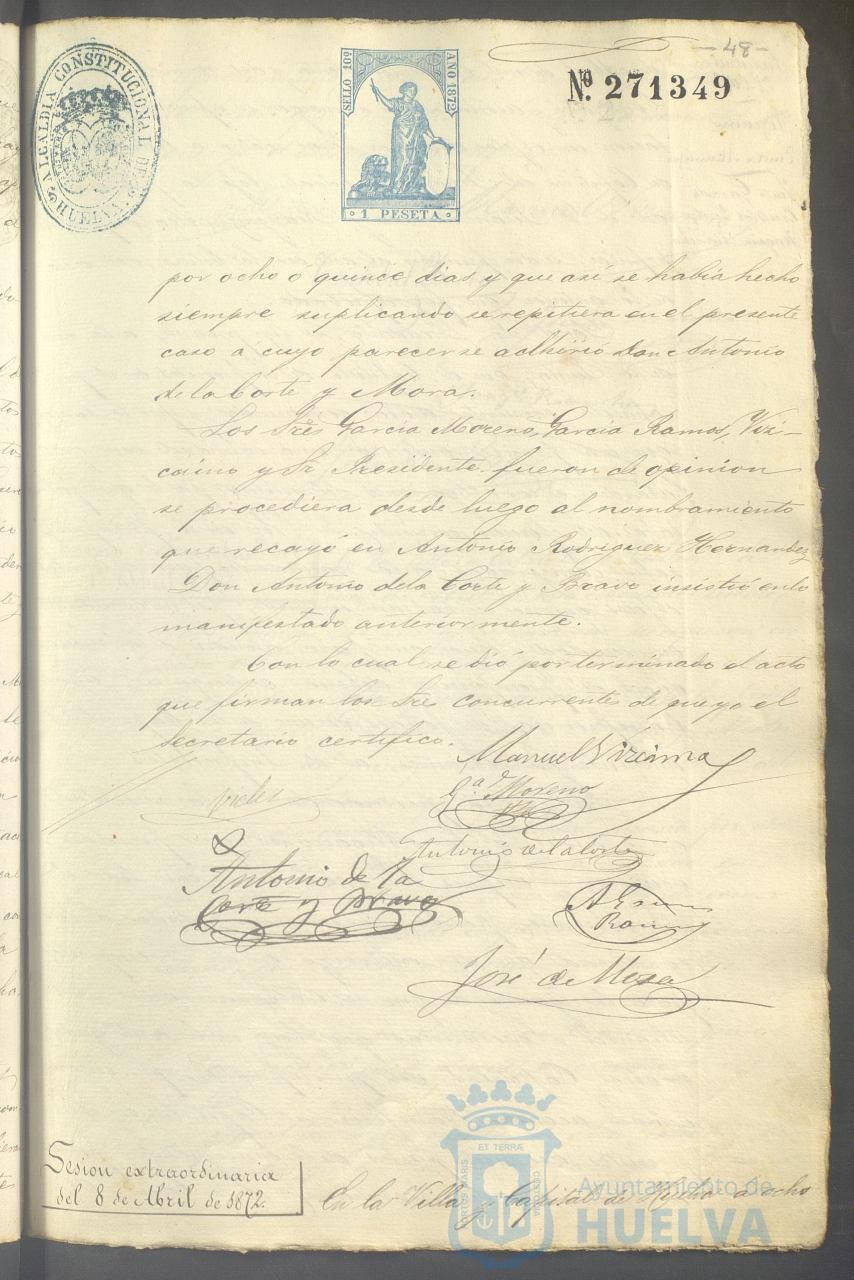 -48-
ALCALDIA CONSTITUCIONAL DE HUELVA.
SELLO 10º AÑO 1872
1 PESETA
Nº 271349
por ocho o quince dias y que asi se habia hecho
siempre suplicando se repitiera en el presente
caso a cuyo parecer se adhirió Don Antonio
de la Corte y Mora.
Los Sres Garcia Moreno, Garcia Ramos, Viz-
caino y Sr Presidente. fueron de opinion
se procediera desde luego al nombramiento
que recayó en Antonio Rodriguez Hernandez
Don Antonio dela Corte y Bravo insistió en lo
manifestado anteriormente.
Con lo cual se dió por terminado el acto
que firman los Sres concurrentes de que yo el
Secretario certifico.
Manuel Vizcaino
Gª Moreno
Antonio de la Corte
Antonio de la
Corte y Bravo
José de Mesa
Sesion extraordinaria
del 8 de Abril de 1872.
En la Villa y Capital de Huelva a ocho
ET TERRÆ
PORTUS MARIS
CUSTODIA
Ayuntamiento de
HUELVA